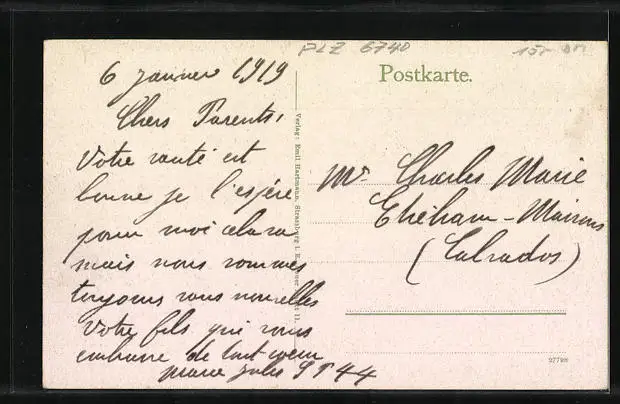 PLZ 6740
15,- DM
Postkarte.
6 janvier 1919
Chers Parents,
Votre santé est
bonne je l'espère
pour moi cela va
mais nous sommes
toujours sans nouvelles
Votre fils qui vous
embrasse de tout coeur
Marie Jules
Verlag: Emil Hartmann, Strassburg i. E.
Mr Charles Marie
Etréham - Maisons
(Calvados)